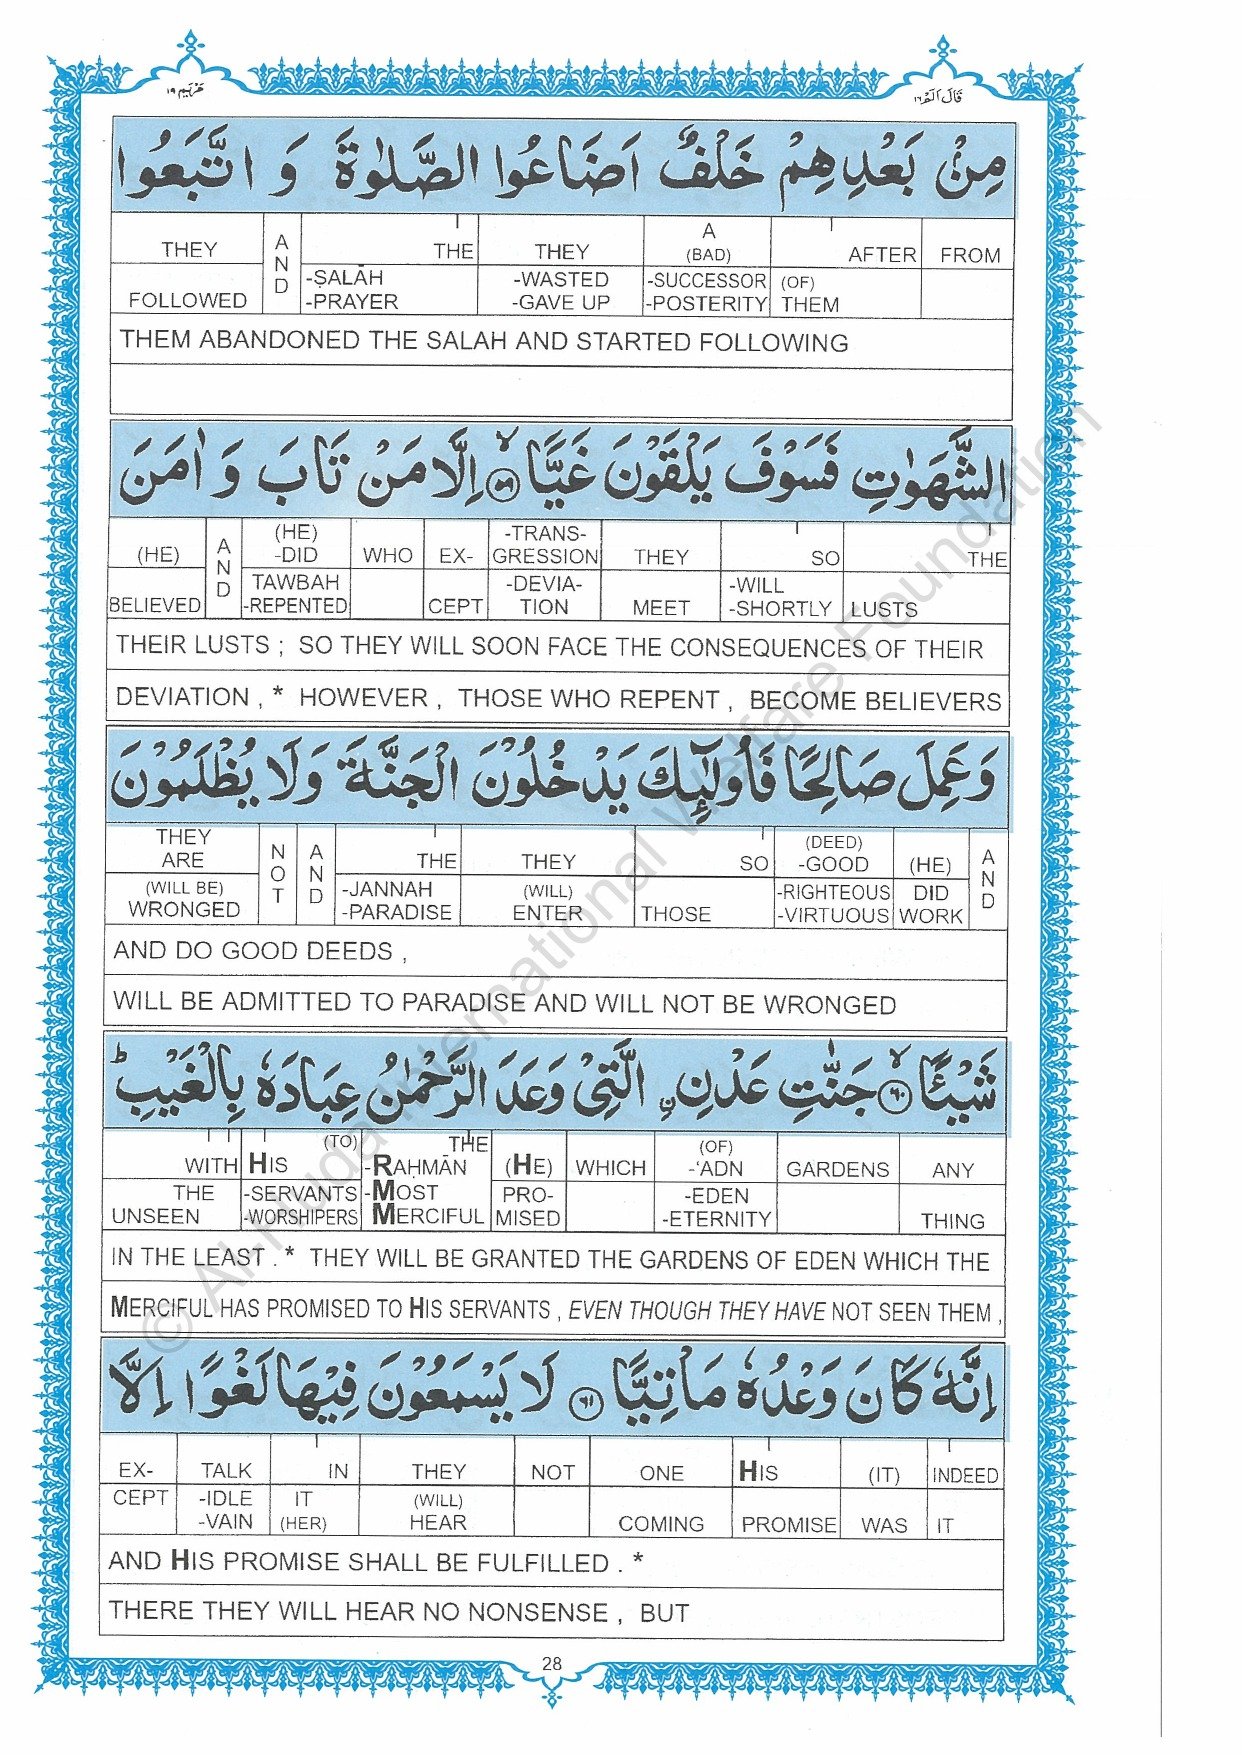 مَرْيَم ١٩
قَالَ اَلَمْ ١٦
مِنْۢ بَعْدِهِمْ خَلْفٌ اَضَاعُوا الصَّلٰوةَ وَ اتَّبَعُوا
THEY AND THE THEY A (BAD) AFTER FROM
FOLLOWED -ṢALĀH -PRAYER -WASTED -GAVE UP -SUCCESSOR -POSTERITY (OF) THEM
THEM ABANDONED THE SALAH AND STARTED FOLLOWING
الشَّهَوٰتِ فَسَوْفَ يَلْقَوْنَ غَيًّا ۙ﴿٥٩﴾ اِلَّا مَنْ تَابَ وَ اٰمَنَ
(HE) AND (HE) -DID WHO EX- -TRANS- GRESSION THEY SO THE
BELIEVED TAWBAH -REPENTED CEPT -DEVIA- TION MEET -WILL -SHORTLY LUSTS
THEIR LUSTS ; SO THEY WILL SOON FACE THE CONSEQUENCES OF THEIR
DEVIATION , * HOWEVER , THOSE WHO REPENT , BECOME BELIEVERS
وَ عَمِلَ صَالِحًا فَاُولٰٓئِكَ يَدْخُلُوْنَ الْجَنَّةَ وَلَا يُظْلَمُوْنَ
THEY ARE NOT AND THE THEY SO (DEED) -GOOD (HE) AND
(WILL BE) WRONGED -JANNAH -PARADISE (WILL) ENTER THOSE -RIGHTEOUS -VIRTUOUS DID WORK
AND DO GOOD DEEDS ,
WILL BE ADMITTED TO PARADISE AND WILL NOT BE WRONGED
شَيْئًا ۙ﴿٦٠﴾ جَنّٰتِ عَدْنِ ۨ الَّتِيْ وَعَدَ الرَّحْمٰنُ عِبَادَهٗ بِالْغَيْبِ ؕ
WITH HIS (TO) THE -RAḤMĀN (HE) WHICH (OF) -‘ADN GARDENS ANY
THE UNSEEN -SERVANTS -WORSHIPERS -MOST MERCIFUL PRO- MISED -EDEN -ETERNITY THING
IN THE LEAST . * THEY WILL BE GRANTED THE GARDENS OF EDEN WHICH THE
MERCIFUL HAS PROMISED TO HIS SERVANTS , EVEN THOUGH THEY HAVE NOT SEEN THEM ,
اِنَّهٗ كَانَ وَعْدُهٗ مَاْتِيًّا ﴿٦١﴾ لَا يَسْمَعُوْنَ فِيْهَا لَغْوًا اِلَّا
EX- TALK IN THEY NOT ONE HIS (IT) INDEED
CEPT -IDLE -VAIN IT (HER) (WILL) HEAR COMING PROMISE WAS IT
AND HIS PROMISE SHALL BE FULFILLED . *
THERE THEY WILL HEAR NO NONSENSE , BUT
28
© Al-Huda International Welfare Foundation